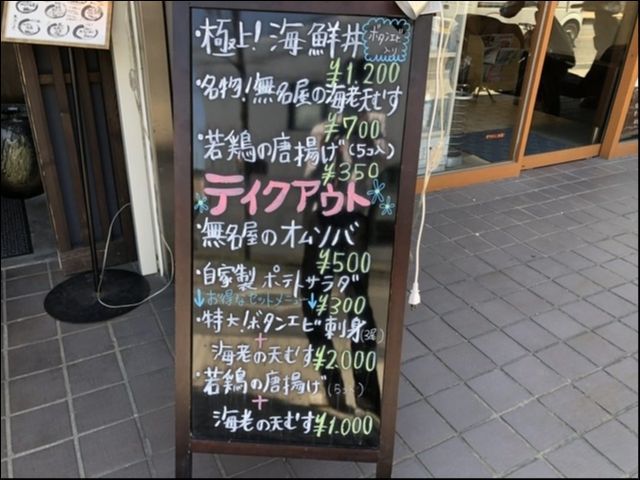 ・極上!海鮮丼 ボタンエビ入り
¥1,200
・名物!無名屋の海老天むす
¥700
・若鶏の唐揚げ(5コ入)
¥350
テイクアウト
・無名屋のオムソバ
¥500
・自家製 ポテトサラダ
¥300
↓お得なセットメニュー↓
・特大!ボタンエビ刺身(3尾)
+
海老の天むす ¥2,000
・若鶏の唐揚げ(5コ入)
+
海老の天むす ¥1,000